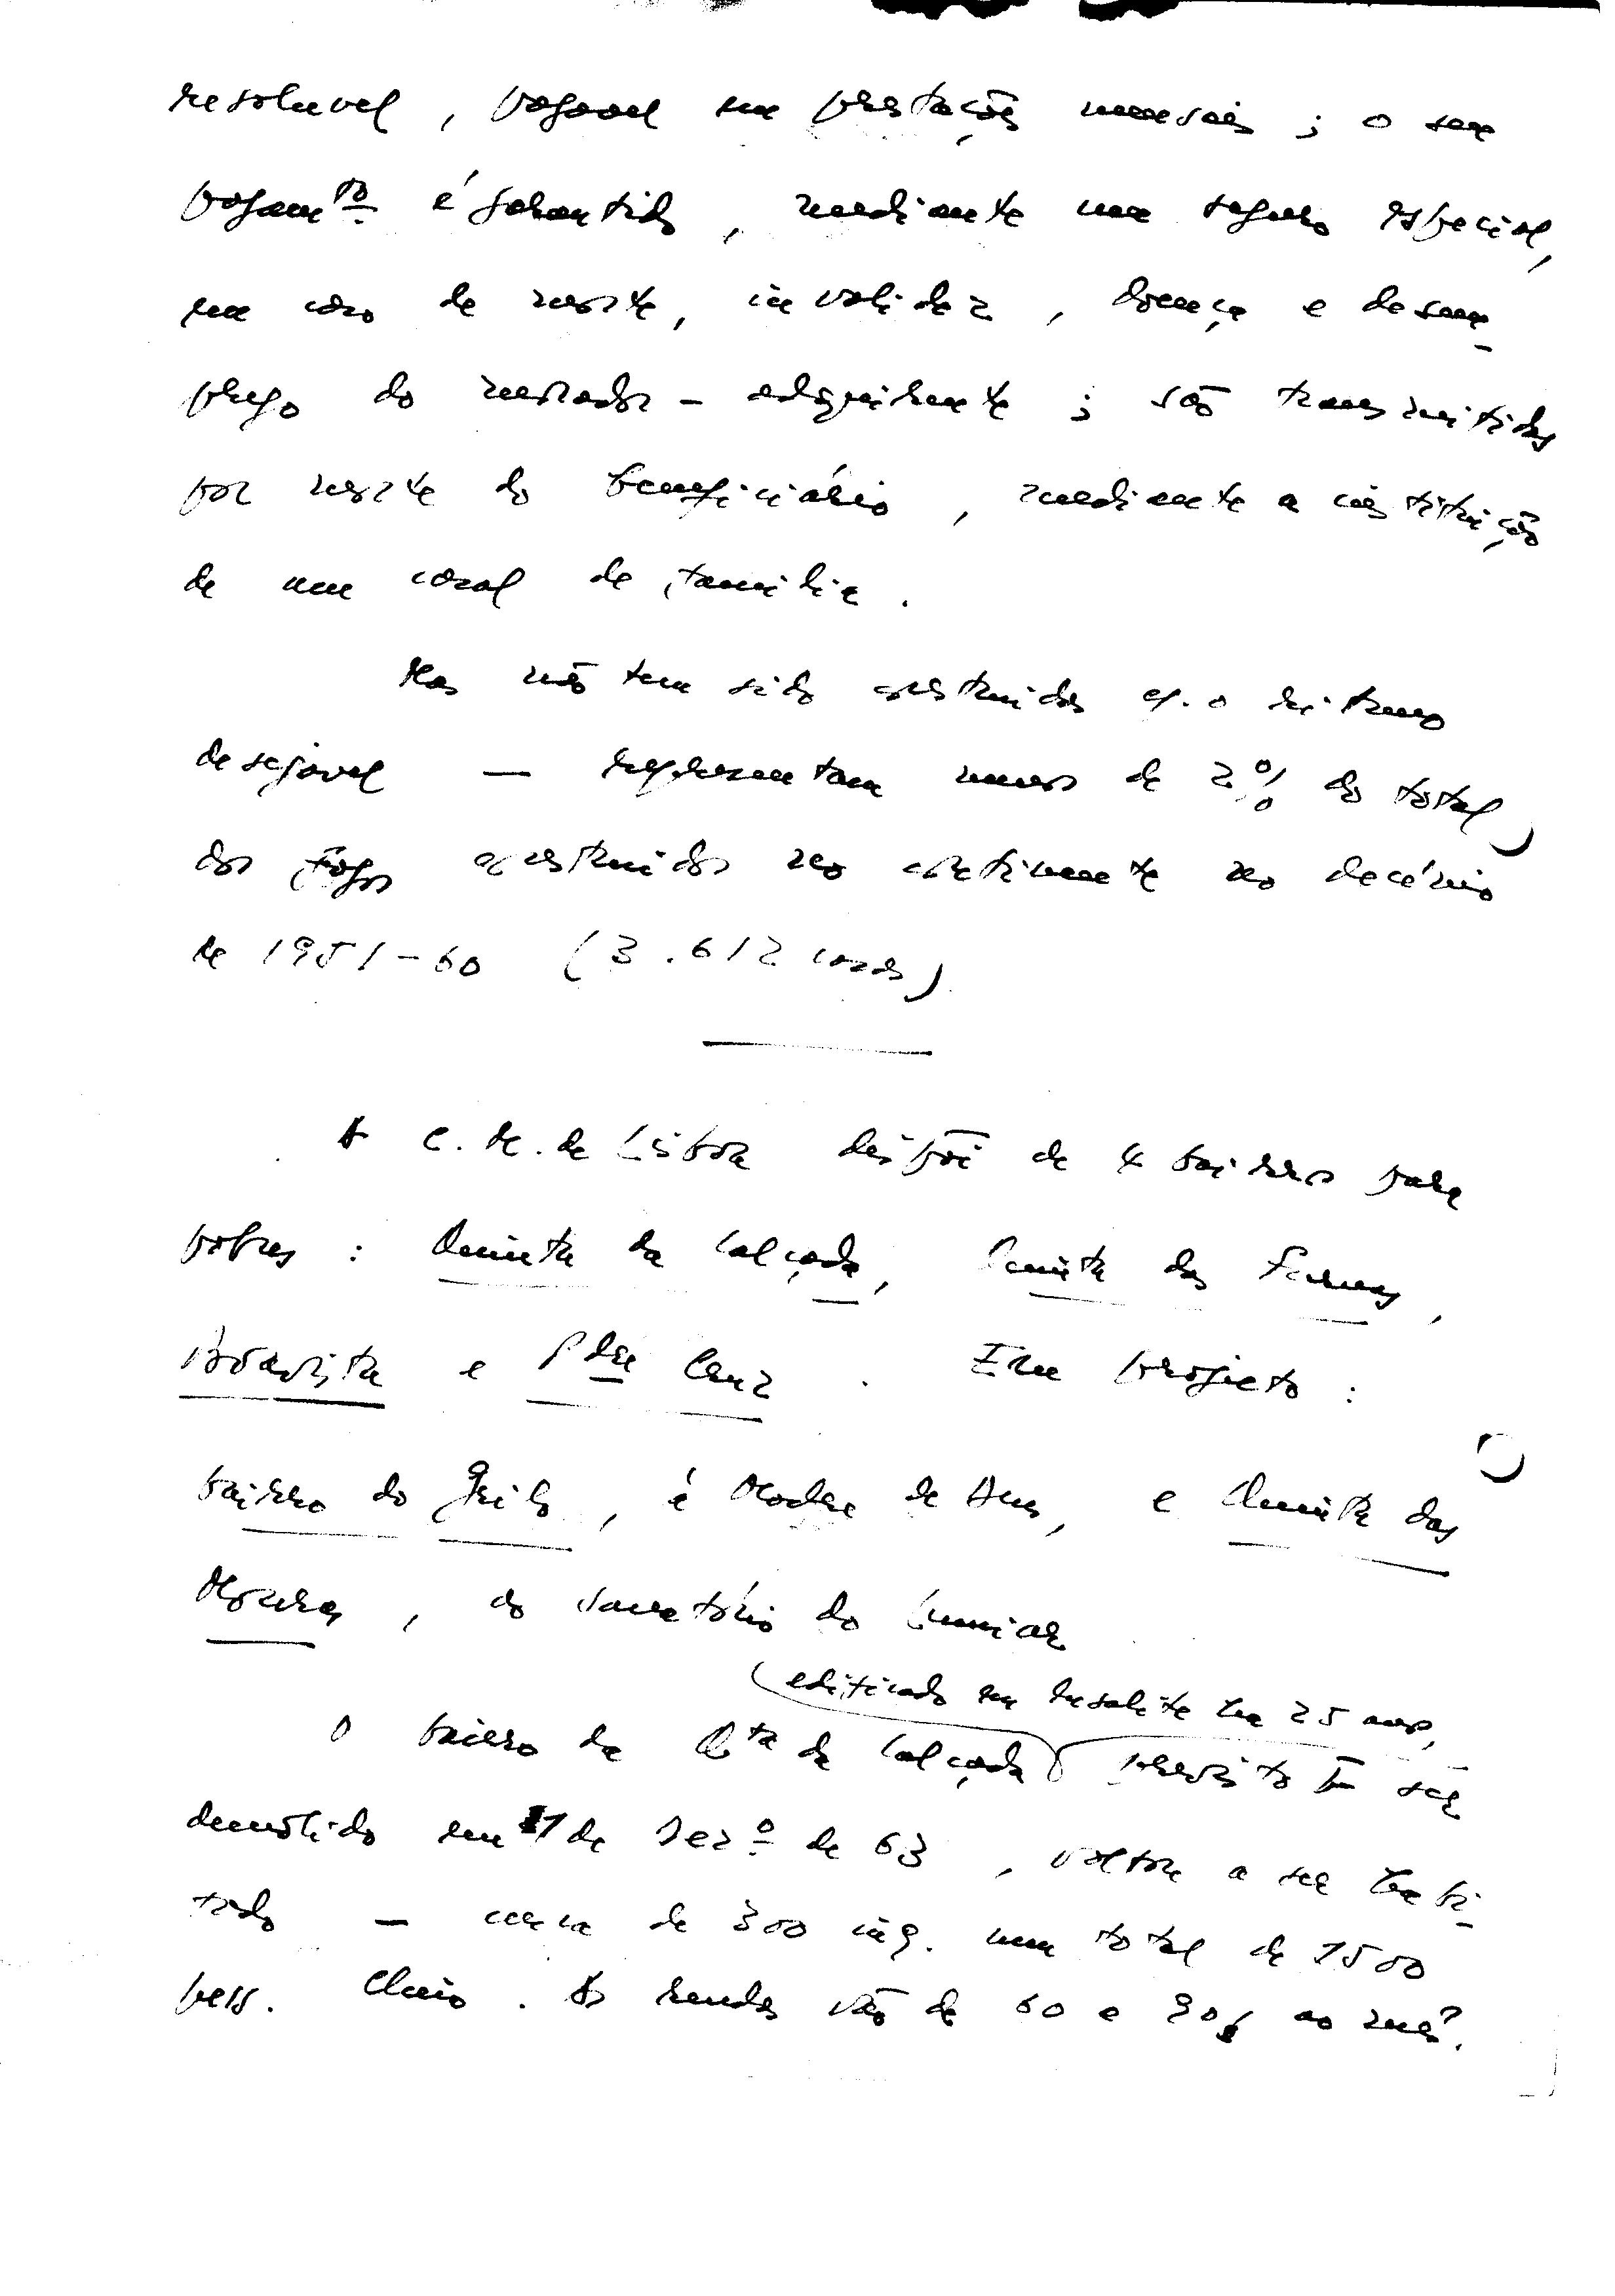 resoluvel, pagavel em prestações mensais; o seu
pagamto é garantido, mediante um seguro especial,
em caso de morte, invalidez, doença e desem-
prego do morador-adquirente; são transmitidas
por morte do beneficiário, mediante a instituição
de um casal de família.
Mas não tem sido construidas c/. o ritmo
desejavel — representam menos de 2% do total
dos fogos construidos no continente no decénio
de 1951-60 (3.612 casas)
A C. M. de Lisboa dispõe de 4 bairros para
pobres: Quinta da Calçada, Quinta das Furnas,
Boavista e Pde Cruz. Em projecto:
bairro do Grilo, à Madre de Deus, e Quinta das
Mouras, ao sanatório do Lumiar
edificado em lusalite há 25 anos,
O bairro da Qta da Calçada previsto p ser
demolido em 1 de Dezo de 63, voltou a ser habi-
tado — cerca de 300 inq. num total de 1500
pess. Cheio. As rendas vão de 60 e 90$ ao mês.